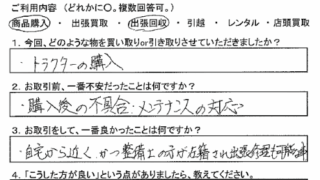 ご利用内容(どれかに○。複数回答可。)
商品購入 ・ 出張買取 ・ 出張回収 ・ 引越 ・ レンタル ・ 店頭買取
1. 今回、どのような物を買い取りor引き取りさせていただきましたか?
・トラクターの購入
2. お取引前、一番不安だったことは何ですか?
・購入後の不具合・メンテナンスの対応
3. お取引をして、一番良かったことは何ですか?
・自宅から近く、かつ整備士の方が在籍され出張修理可能
4. 「こうした方が良い」という点がありましたら、教えてください。